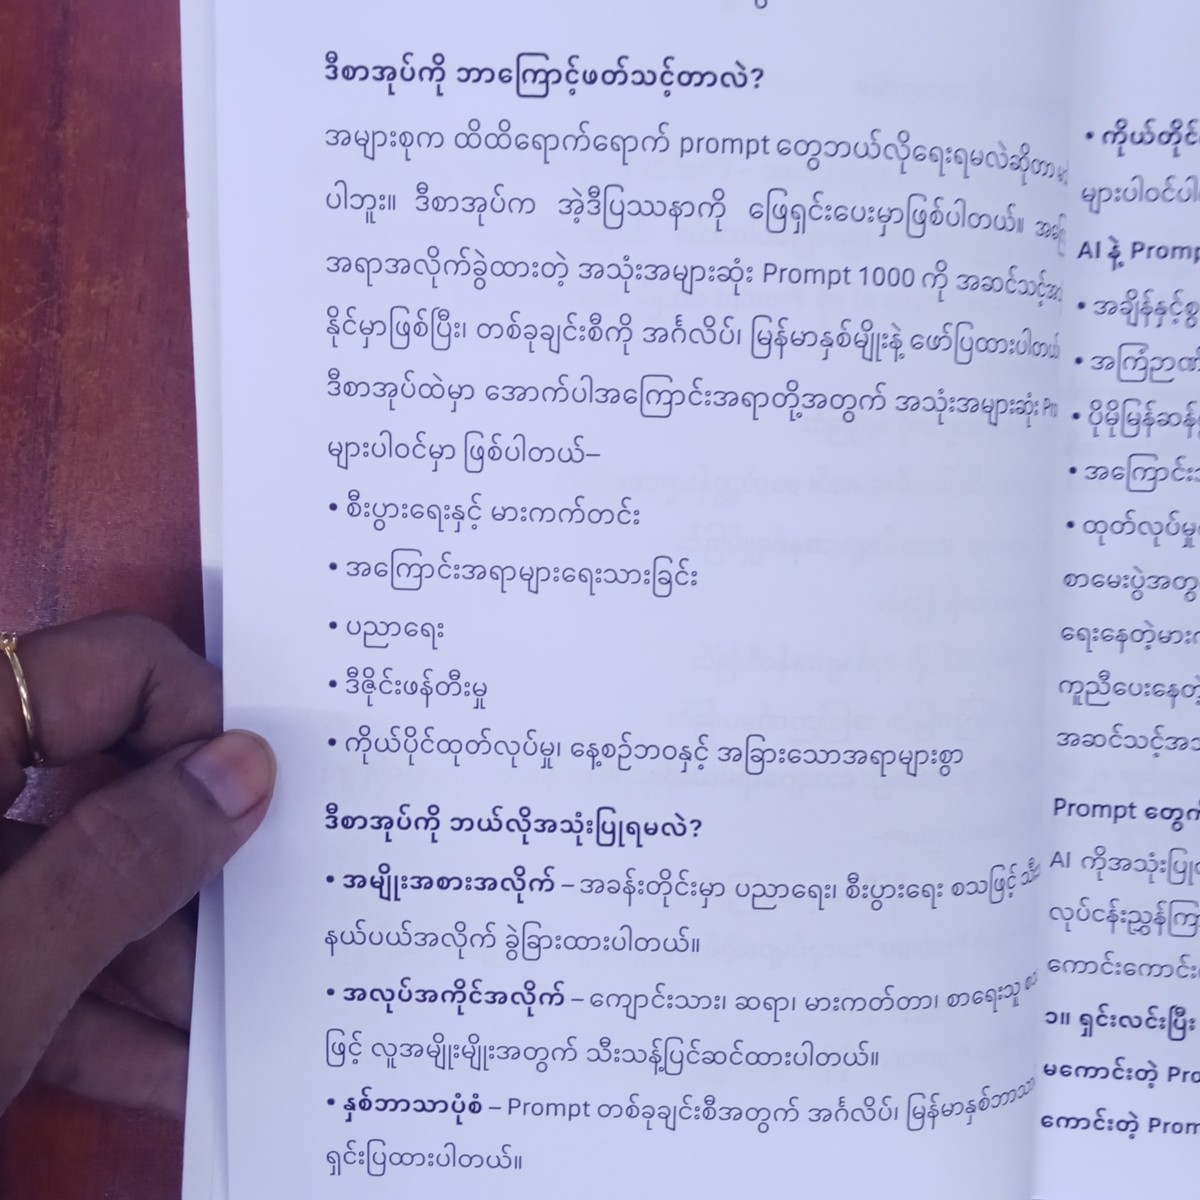 ဒီစာအုပ်ကို ဘာကြောင့်ဖတ်သင့်တာလဲ?
အများစုက ထိထိရောက်ရောက် prompt တွေဘယ်လိုရေးရမလဲဆိုတာ
ပါဘူး။ ဒီစာအုပ်က အဲ့ဒီပြဿနာကို ဖြေရှင်းပေးမှာဖြစ်ပါတယ်။
အရာအလိုက်ခွဲထားတဲ့ အသုံးအများဆုံး Prompt 1000 ကို
နိုင်မှာဖြစ်ပြီး၊ တစ်ခုချင်းစီကို အင်္ဂလိပ်၊ မြန်မာနှစ်မျိုးနဲ့ ဖော်ပြထားပါတယ်
ဒီစာအုပ်ထဲမှာ အောက်ပါအကြောင်းအရာတို့အတွက် အသုံးအများဆုံး
များပါဝင်မှာ ဖြစ်ပါတယ်–
• စီးပွားရေးနှင့် မားကက်တင်း
• အကြောင်းအရာများရေးသားခြင်း
• ပညာရေး
• ဒီဇိုင်းဖန်တီးမှု
• ကိုယ်ပိုင်ထုတ်လုပ်မှု၊ နေ့စဉ်ဘဝနှင့် အခြားသောအရာများစွာ
ဒီစာအုပ်ကို ဘယ်လိုအသုံးပြုရမလဲ?
• အမျိုးအစားအလိုက် – အခန်းတိုင်းမှာ ပညာရေး၊ စီးပွားရေး စသဖြင့်
နယ်ပယ်အလိုက် ခွဲခြားထားပါတယ်။
• အလုပ်အကိုင်အလိုက် – ကျောင်းသား၊ ဆရာ၊ မားကတ်တာ၊ စာရေးသူ
ဖြင့် လူအမျိုးမျိုးအတွက် သီးသန့်ပြင်ဆင်ထားပါတယ်။
• နှစ်ဘာသာပုံစံ – Prompt တစ်ခုချင်းစီအတွက် အင်္ဂလိပ်၊ မြန်မာနှစ်ဘာသာ
ရှင်းပြထားပါတယ်။
• ကိုယ်တိုင်
များပါဝင်ပါ
AI နဲ့ Promp
• အချိန်နှင့်
• အကြံဉာဏ်
• ပိုမိုမြန်ဆန်
• အကြောင်း
• ထုတ်လုပ်မှု
စာမေးပွဲအတွ
ရေးနေတဲ့မား
ကူညီပေးနေတဲ့
အဆင်သင့်
Prompt တွေ
AI ကိုအသုံးပြု
လုပ်ငန်းညွှန်ကြ
ကောင်းကောင်း
၁။ ရှင်းလင်းပြီး
မကောင်းတဲ့ Pro
ကောင်းတဲ့ Prom